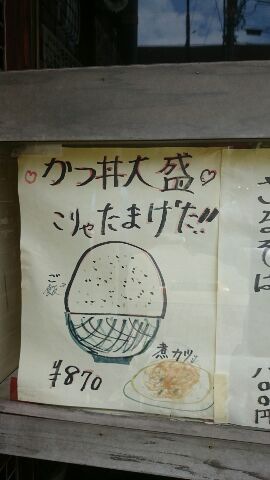 ♡かつ丼大盛♡
こりゃたまげた!!
ご飯
煮カツ
¥870
ざるそば
八〇〇円